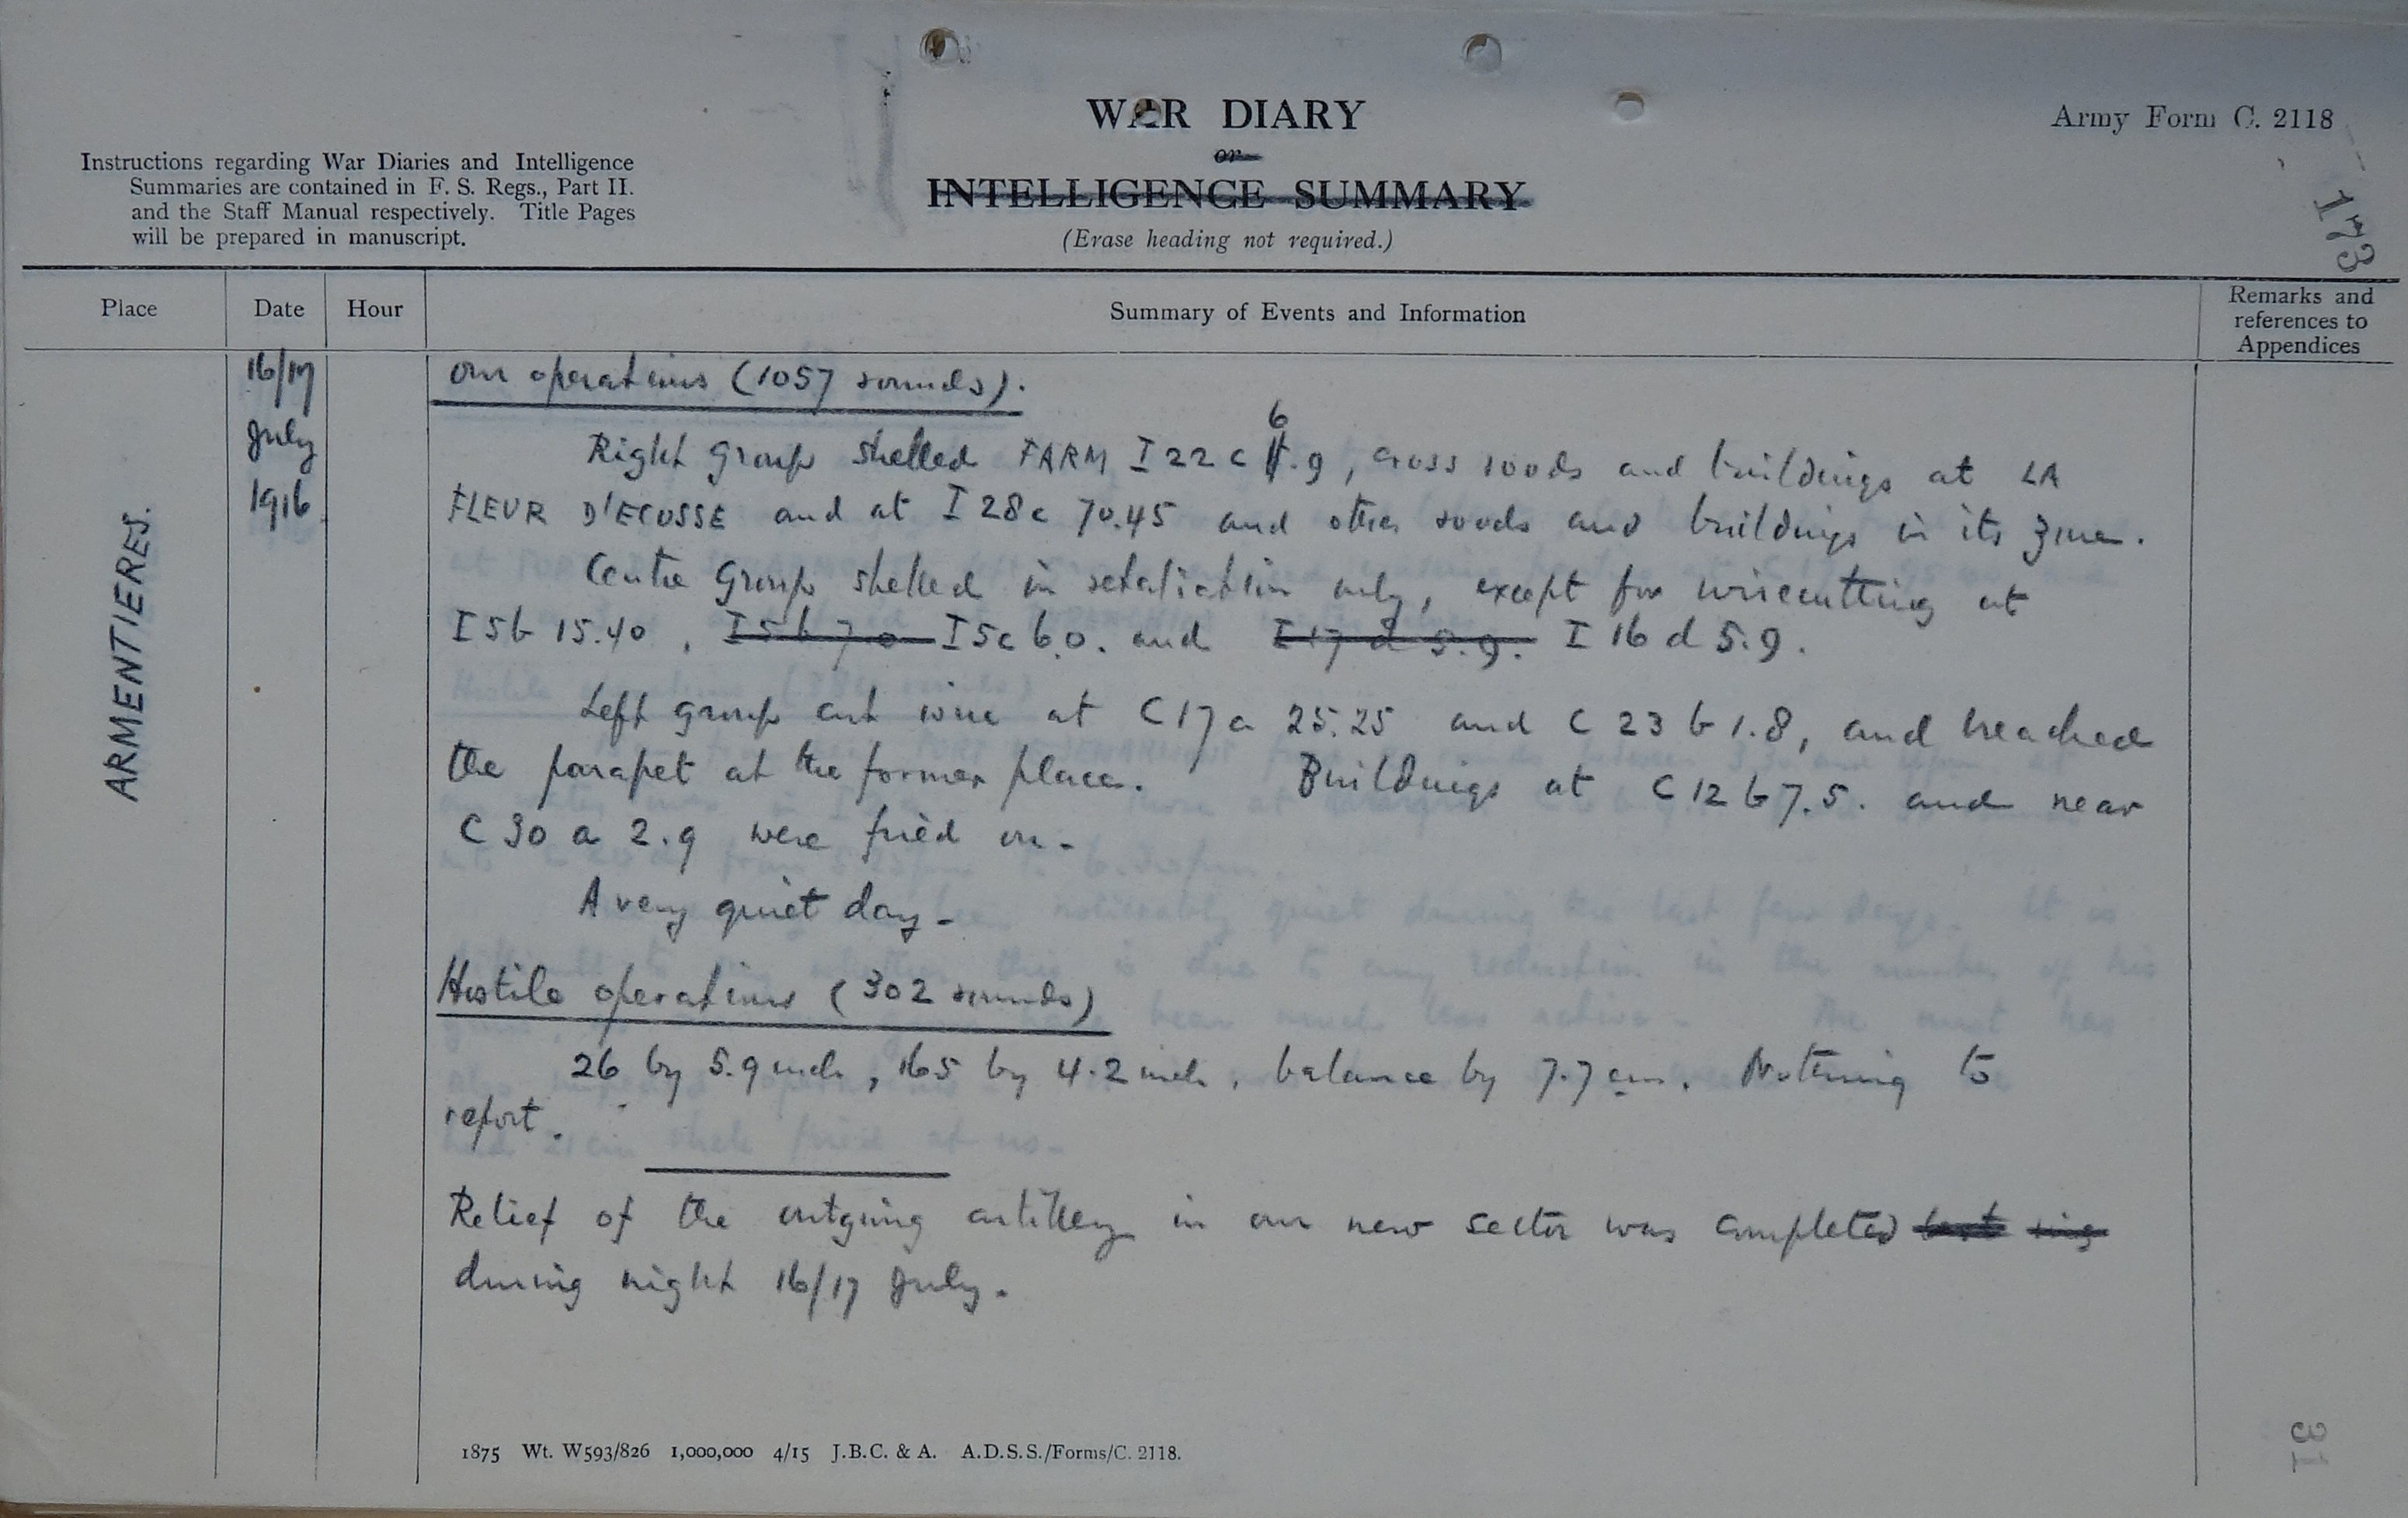 WAR DIARY
or
INTELLIGENCE SUMMARY
(Erase heading not required.)
Army Form C. 2118
173
Instructions regarding War Diaries and Intelligence
Summaries are contained in F. S. Regs., Part II.
and the Staff Manual respectively. Title Pages
will be prepared in manuscript.
Place
Date
Hour
Summary of Events and Information
Remarks and
references to
Appendices
ARMENTIERES.
16/17
July
1916
Our operations (1057 rounds).
Right Group shelled FARM I 22 c 6.9, cross roads and buildings at LA
FLEUR D'ECOSSE and at I 28 c 70.45 and other roads and buildings in its zone.
Centre Group shelled in retaliation only, except for wirecutting at
I 5 b 15.40, I 5 b 7.0 I 5 c 6.0. and I 17 d 5.9. I 16 d 5.9.
Left group cut wire at C 17 a 25.25 and C 23 b 1.8, and breached
the parapet at the former place. Buildings at C 12 b 7.5. and near
C 30 a 2.9 were fired on.
A very quiet day.
Hostile operations (302 rounds)
26 by 5.9 inch, 165 by 4.2 inch, balance by 7.7 cm. Nothing to
report.
Relief of the outgoing artillery in our new sector was completed last
during night 16/17 July.
1875 Wt. W593/826 1,000,000 4/15 J.B.C. & A. A.D.S.S./Forms/C. 2118.
31